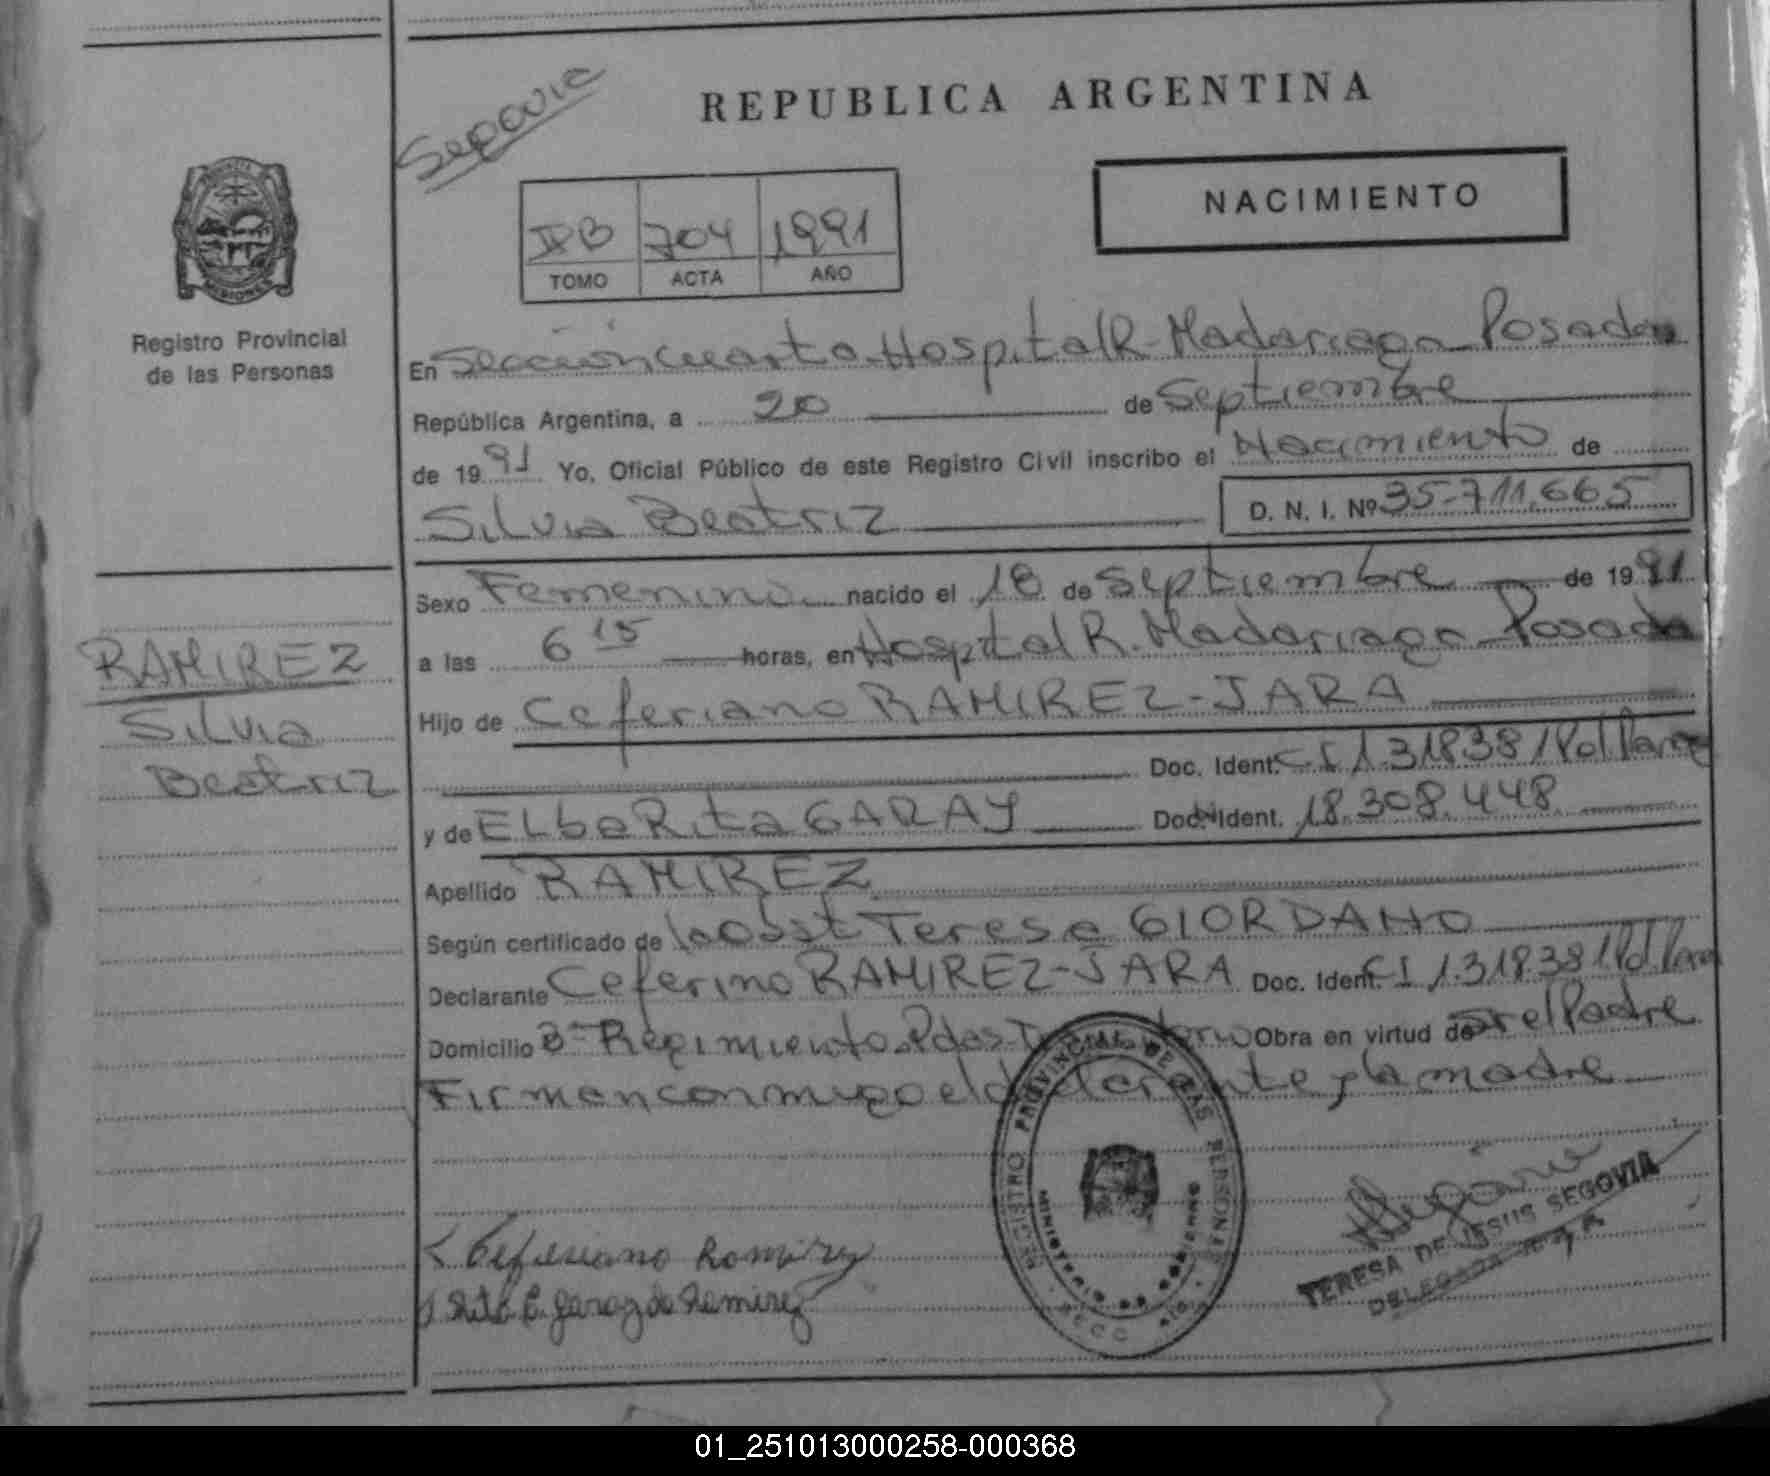 Segovia
REPUBLICA ARGENTINA
NACIMIENTO
704 1991
TOMO ACTA AÑO
MISIONES
Registro Provincial
de las Personas
En Sección cuarta Hospital R. Madariaga Posadas
República Argentina, a 20 de Septiembre
de 1991 Yo, Oficial Público de este Registro Civil inscribo el Nacimiento de
Silvia Beatriz D. N. I. Nº 35.711.665
Sexo Femenino nacido el 18 de Septiembre de 1991
a las 6 15 horas, en Hospital R. Madariaga Posadas
RAMIREZ
Silvia
Beatriz
Hijo de Ceferiano RAMIREZ-JARA
Doc. Ident. C I 1.318381 Pol.
y de ELba Rita GARAY Doc. Ident. 18.308.448
Apellido RAMIREZ
Según certificado de la Obst Teresa GIORDANO
Declarante Ceferino RAMIREZ-JARA Doc. Ident. C I 1.318381 Pol.
Domicilio Bº Regimiento Pdas Obra en virtud de Sr el Padre
Firman conmigo el declarante y la madre
REGISTRO PROVINCIAL DE LAS PERSONAS
Ceferiano Ramirez
Rita E. Garay de Ramirez
TERESA DE JESUS SEGOVIA
DELEGADA
01_251013000258-000368